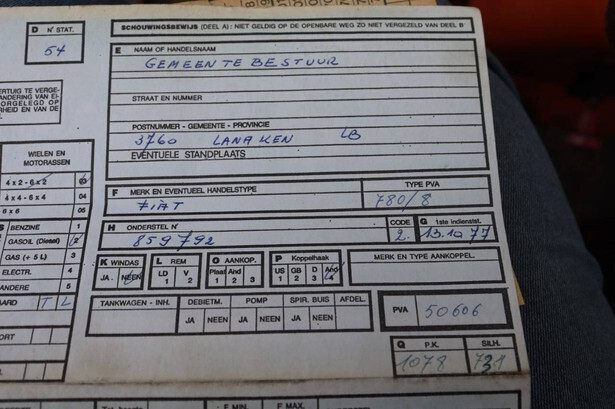 D N° STAT.
54
SCHOUWINGSBEWIJS (DEEL A) : NIET GELDIG OP DE OPENBARE WEG ZO NIET VERGEZELD VAN DEEL B'
E NAAM OF HANDELSNAAM
GEMEENTEBESTUUR
STRAAT EN NUMMER
POSTNUMMER - GEMEENTE - PROVINCIE
3760 LANAKEN LB
EVENTUELE STANDPLAATS
ERTUIG TE VERGE-
ANDERING VAN EI-
OORGELEGD OP
RHEID EN VAN DE
WIELEN EN
MOTORASSEN
4 x 2 - 6 x 2 03
4 x 4 - 6 x 4 04
6 x 6 05
F MERK EN EVENTUEEL HANDELSTYPE
FIAT
TYPE PVA
780/8
H ONDERSTEL N°
859792
CODE
2
G 1ste indienstst.
13.10 77
BENZINE 1
GASOIL (Diesel) 2
GAS (+ 5 L) 3
ELECTR. 4
ANDERE 5
AARD T L
K WINDAS
JA . NEEN
L REM
LD V
1 2
O AANKOP.
Plaat And
1 2 3
P Koppelhaak
US GB D And
1 2 3 4
MERK EN TYPE AANKOPPEL.
TANKWAGEN - INH.
DEBIETM.
JA NEEN
POMP
JA NEEN
SPIR. BUIS
JA NEEN
AFDEL.
PVA 50606
Q P.K. SILH.
1078 731
OORT
F MIN. F MAX.